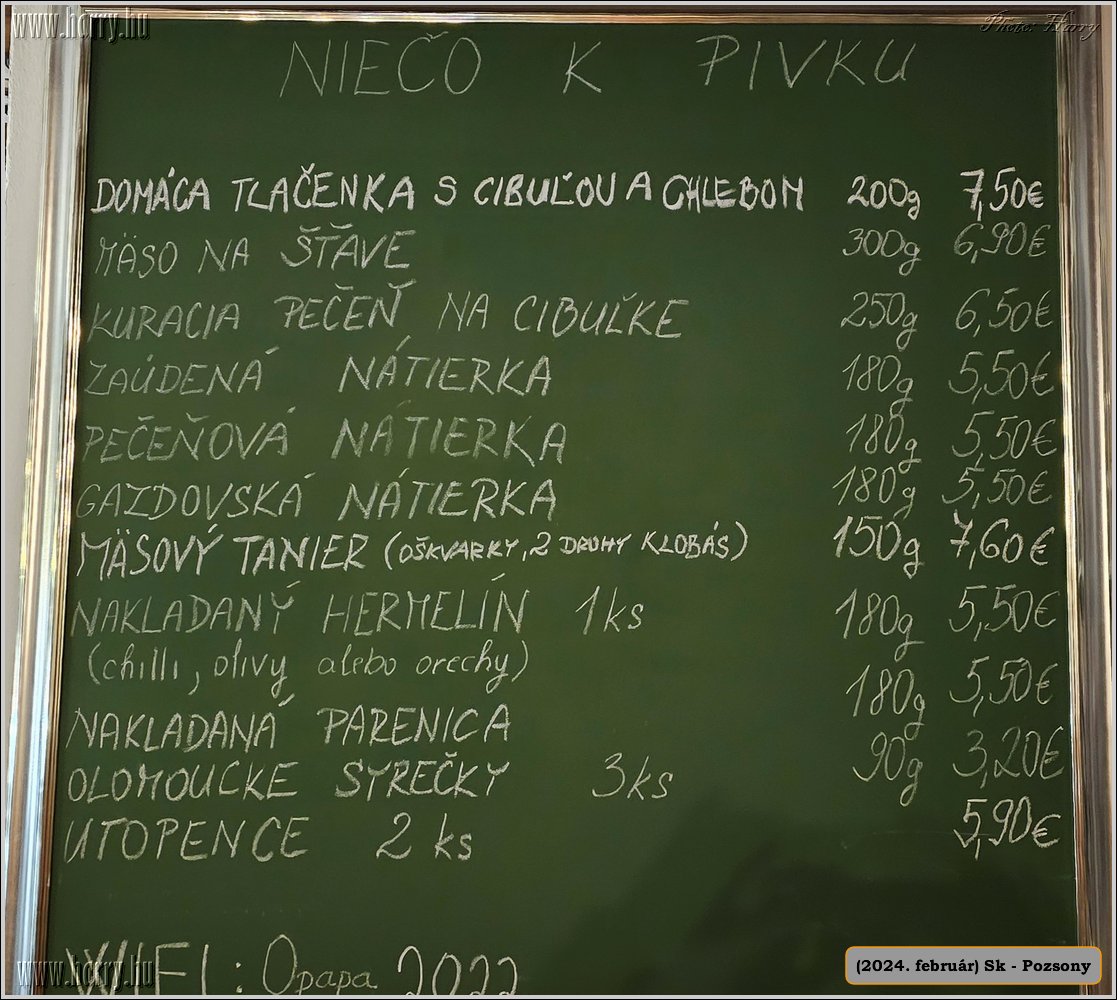 www.harry.hu
Photo: Harry
NIEČO K PIVKU
DOMÁCA TLAČENKA S CIBUĽOU A CHLEBOM 200g 7,50€
MÄSO NA ŠŤAVE 300g 6,90€
KURACIA PEČEŇ NA CIBUĽKE 250g 6,50€
ZAÚDENÁ NÁTIERKA 180g 5,50€
PEČEŇOVÁ NÁTIERKA 180g 5,50€
GAZDOVSKÁ NÁTIERKA 180g 5,50€
MÄSOVÝ TANIER (OŠKVARKY, 2 DRUHY KLOBÁS) 150g 7,60€
NAKLADANÝ HERMELÍN 1ks 180g 5,50€
(chilli, olivy alebo orechy)
NAKLADANÁ PARENICA 180g 5,50€
OLOMOUCKE SYREČKY 3ks 90g 3,20€
UTOPENCE 2 ks 5,90€
WIFI: Opapa 2022
www.harry.hu
(2024. február) Sk - Pozsony